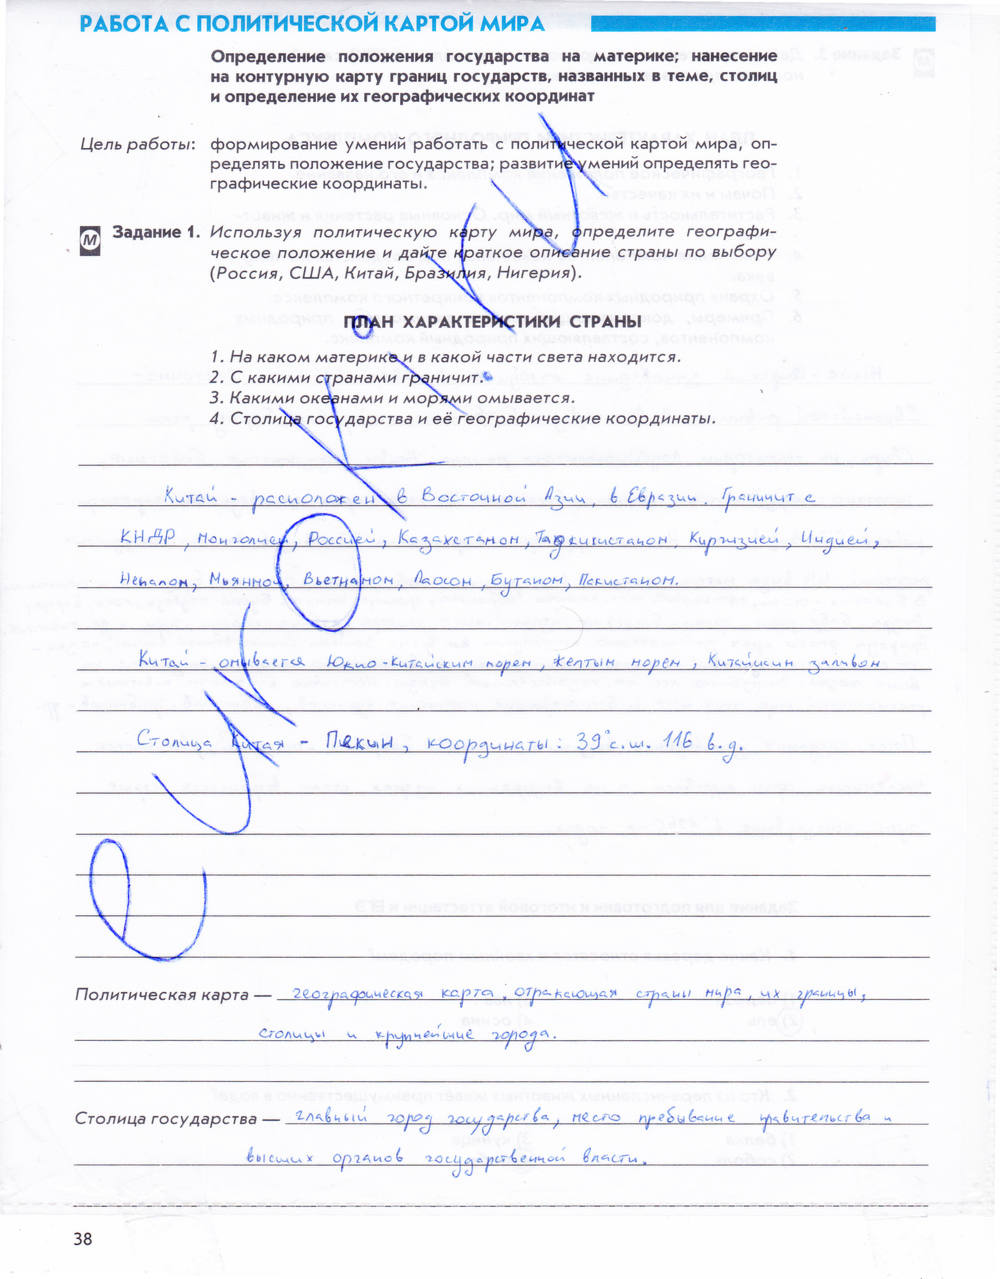 РАБОТА С ПОЛИТИЧЕСКОЙ КАРТОЙ МИРА
Определение положения государства на материке; нанесение
на контурную карту границ государств, названных в теме, столиц
и определение их географических координат
Цель работы: формирование умений работать с политической картой мира, оп-
ределять положение государства; развитие умений определять гео-
графические координаты.
М Задание 1. Используя политическую карту мира, определите географи-
ческое положение и дайте краткое описание страны по выбору
(Россия, США, Китай, Бразилия, Нигерия).
ПЛАН ХАРАКТЕРИСТИКИ СТРАНЫ
1. На каком материке и в какой части света находится.
2. С какими странами граничит.
3. Какими океанами и морями омывается.
4. Столица государства и её географические координаты.
Китай - расположен в Восточной Азии, в Евразии. Граничит с
КНДР, Монголией, Россией, Казахстаном, Таджикистаном, Киргизией, Индией,
Непалом, Мьянмой, Вьетнамом, Лаосом, Бутаном, Пакистаном.
Китай - омывается Южно-Китайским морем, Желтым морем, Китайским заливом
Столица Китая - Пекин, координаты: 39° с.ш. 116 в.д.
Политическая карта — географическая карта, отражающая страны мира, их границы,
столицы и крупнейшие города.
Столица государства — главный город государства, место пребывание правительства и
высших органов государственной власти.
38